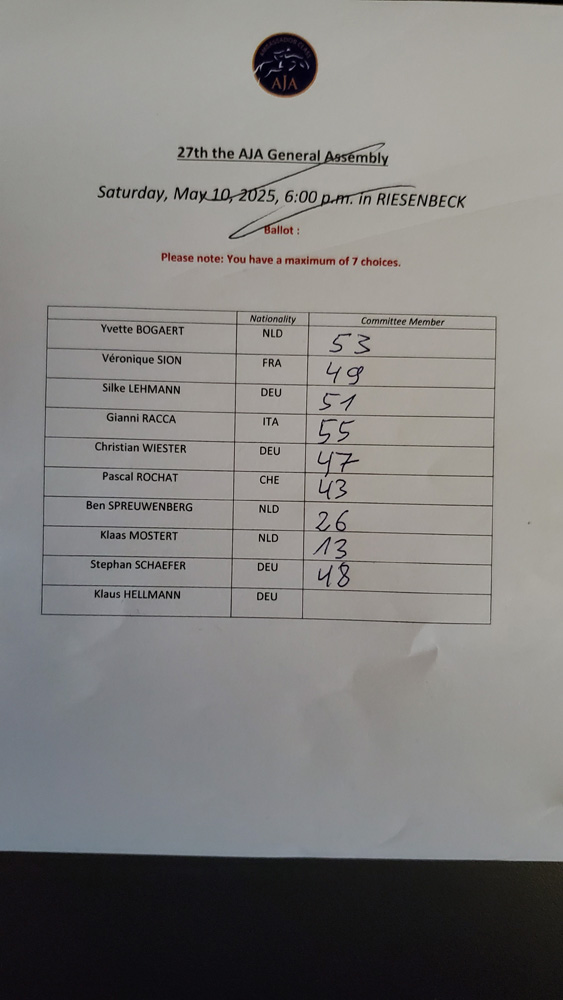 AMBASSADOR CLASS
AJA
27th the AJA General Assembly
Saturday, May 10, 2025, 6:00 p.m. in RIESENBECK
Ballot :
Please note: You have a maximum of 7 choices.
Nationality Committee Member
Yvette BOGAERT NLD 53
Véronique SION FRA 49
Silke LEHMANN DEU 51
Gianni RACCA ITA 55
Christian WIESTER DEU 47
Pascal ROCHAT CHE 43
Ben SPREUWENBERG NLD 26
Klaas MOSTERT NLD 13
Stephan SCHAEFER DEU 48
Klaus HELLMANN DEU